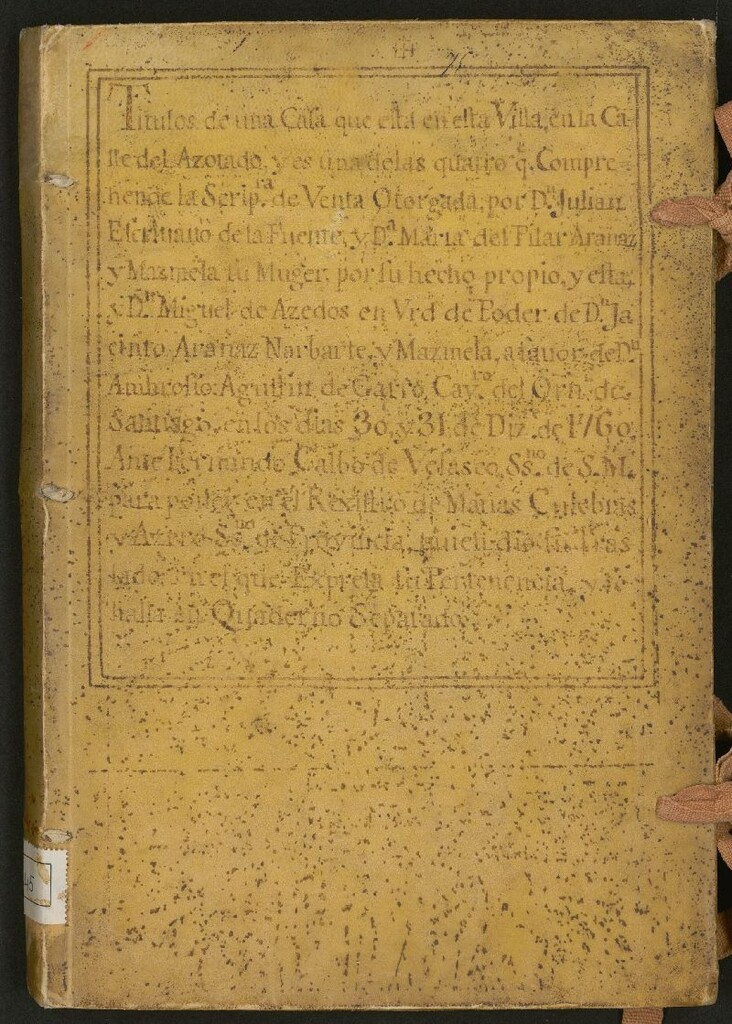 Titulos de una Casa que està en esta Villa, en la Ca-
lle del Azotado, y es una de las quatro q.e Compre-
hende la Scrip.ra de Venta Otorgada, por D.n Julian
Escrivano de la Fuente, y D.a Maria del Pilar Aranaz
y Mazmela su Muger, por su hecho propio, y esta,
y D.n Miguel de Azedos en Vrd de Poder de D.n Ja
cinto Aranaz Narbarte, y Mazmela, a favor de D.n
Ambrosio Agustin de Garro, Cav.ro del Orn. de
Santiago, en los dias 30, y 31 de Diz.e de 1760
Ante Fernando Calbo de Velasco, Ss.no de S.M.
para poner en el Rexistro de Matias Culebras
y Ss.no de Provincia, dio su Tras
lado, en el que Expresa su Pertenencia, y se
halla en Quaderno Separado.
45